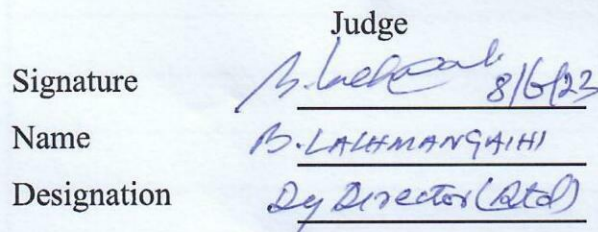 Judge
Signature 8/6/23
Name B. LALHMANGAIHI
Designation Dy Director (Rtd)